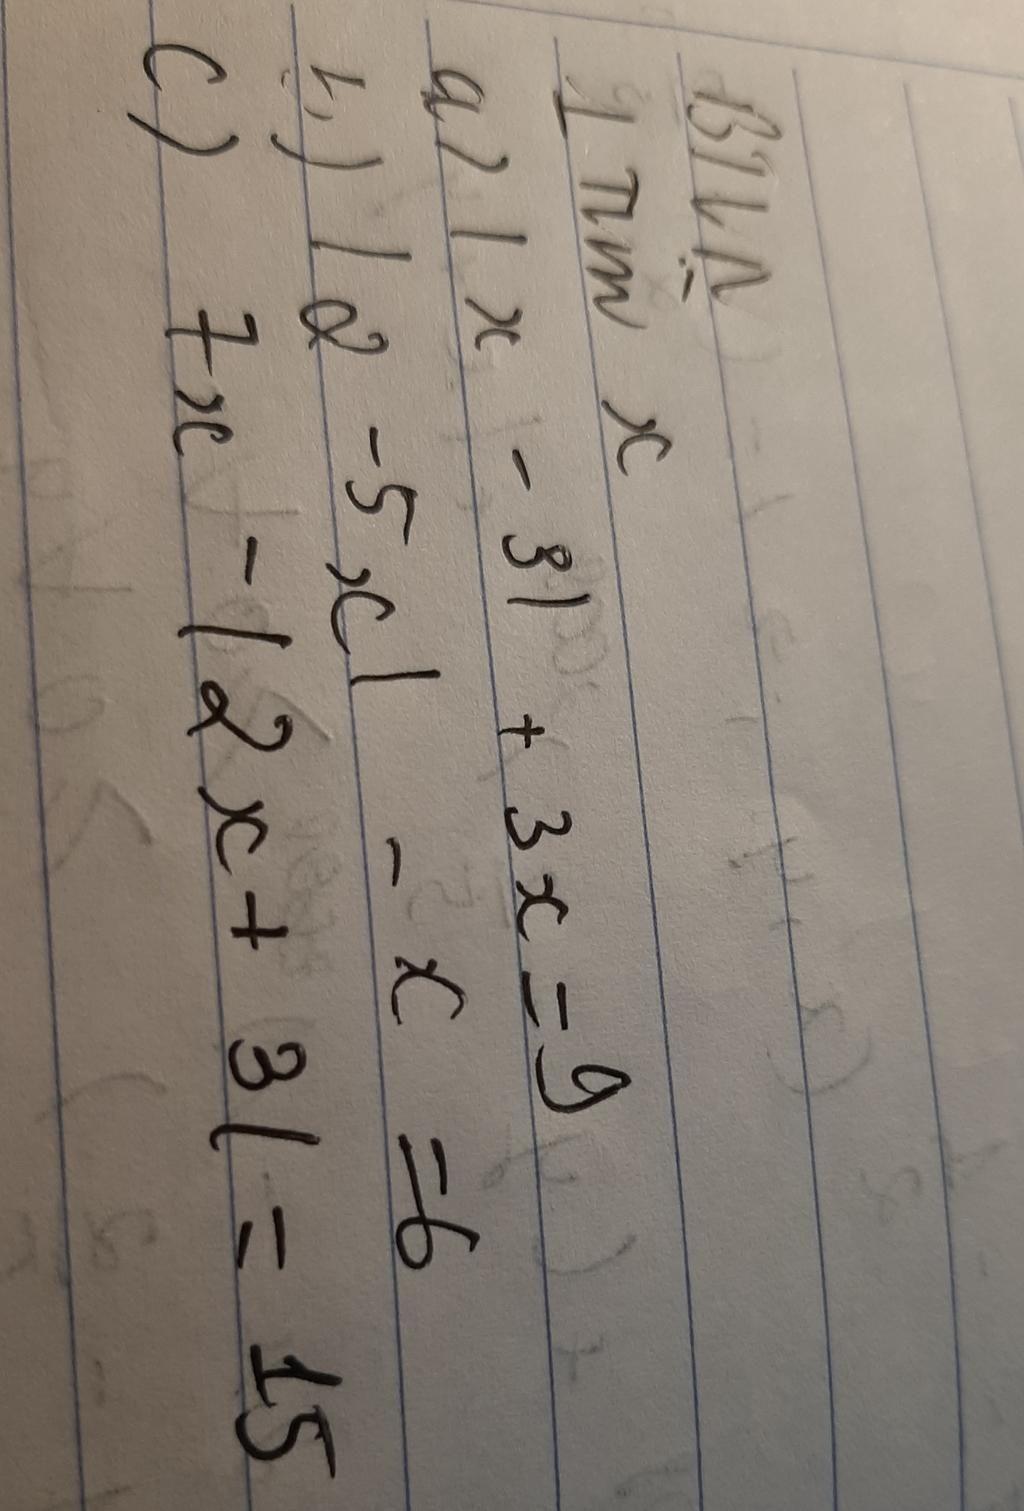 BTVN
1 Tìm x
a) |x - 3| + 3x = 9
b) |2 - 5x| - x = 6
c) 7x - |2x + 3| = 15